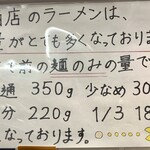 店のラーメンは、
量がとても多くなっておりま
前の麺のみの量で
通 350g 少なめ 30
分 220g 1/3 18
なっております。